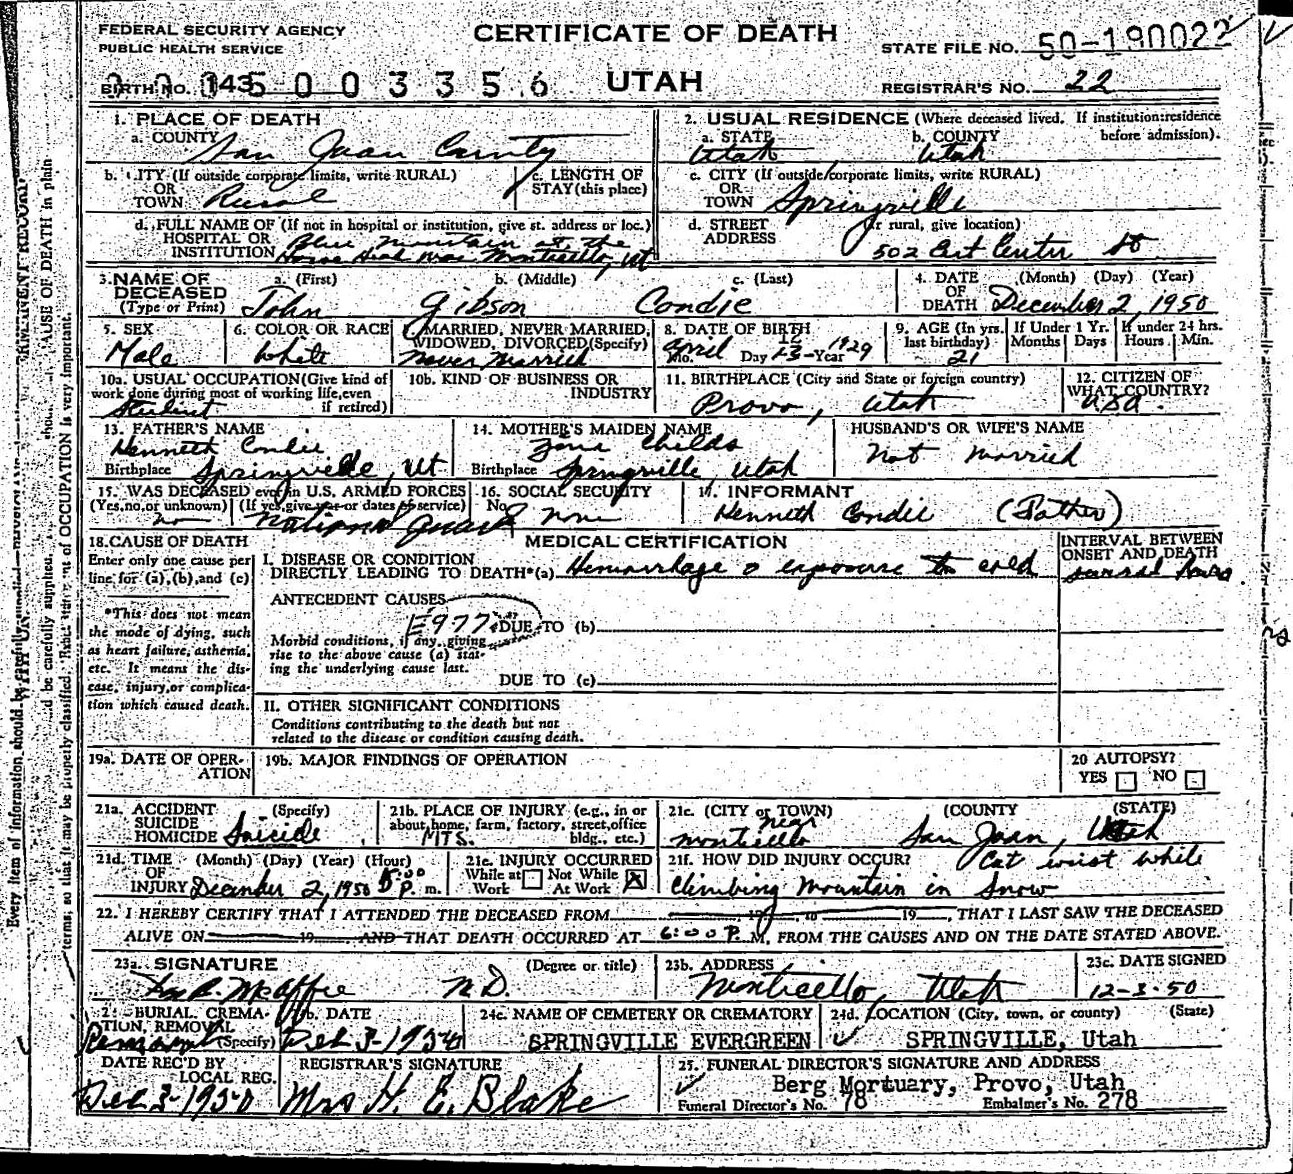 FEDERAL SECURITY AGENCY
PUBLIC HEALTH SERVICE
CERTIFICATE OF DEATH
STATE FILE NO. 50-190022
BIRTH NO. 143
UTAH
REGISTRAR'S NO. 22
1. PLACE OF DEATH
a. COUNTY San Juan County
b. CITY (If outside corporate limits, write RURAL)
OR
TOWN Rural
c. LENGTH OF
STAY (this place)
d. FULL NAME OF (If not in hospital or institution, give st. address or loc.)
HOSPITAL OR
INSTITUTION Blue Mountain at the
Horse Head near Monticello, Ut
2. USUAL RESIDENCE (Where deceased lived. If institution:residence
before admission).
a. STATE Utah
b. COUNTY Utah
c. CITY (If outside corporate limits, write RURAL)
OR
TOWN Springville
d. STREET (If rural, give location)
ADDRESS 502 East Center St
3. NAME OF
DECEASED
(Type or Print)
a. (First) John
b. (Middle) Gibson
c. (Last) Condie
4. DATE (Month) (Day) (Year)
OF
DEATH December 2, 1950
5. SEX
Male
6. COLOR OR RACE
White
7. MARRIED, NEVER MARRIED,
WIDOWED, DIVORCED (Specify)
Never Married
8. DATE OF BIRTH
April
Mo. Day 23-Year 1929
9. AGE (In yrs.
last birthday)
21
If Under 1 Yr.
Months Days
If under 24 hrs.
Hours Min.
10a. USUAL OCCUPATION (Give kind of
work done during most of working life, even
if retired)
Student
10b. KIND OF BUSINESS OR
INDUSTRY
11. BIRTHPLACE (City and State or foreign country)
Provo, Utah
12. CITIZEN OF
WHAT COUNTRY?
USA.
13. FATHER'S NAME
Kenneth Condie
Birthplace Springville, Ut
14. MOTHER'S MAIDEN NAME
Childs
Birthplace Springville, Utah
HUSBAND'S OR WIFE'S NAME
Not Married
15. WAS DECEASED ever in U.S. ARMED FORCES
(Yes, no, or unknown) (If yes, give war or dates of service)
no National Guard
16. SOCIAL SECURITY
No. none
17. INFORMANT
Kenneth Condie (Father)
18. CAUSE OF DEATH
Enter only one cause per
line for (a), (b), and (c)
*This does not mean
the mode of dying, such
as heart failure, asthenia,
etc. It means the dis-
ease, injury, or complica-
tion which caused death.
MEDICAL CERTIFICATION
INTERVAL BETWEEN
ONSET AND DEATH
several hours
I. DISEASE OR CONDITION
DIRECTLY LEADING TO DEATH*(a) Hemorrhage & exposure to cold
ANTECEDENT CAUSES
E977
DUE TO (b)
Morbid conditions, if any, giving
rise to the above cause (a) stat-
ing the underlying cause last.
DUE TO (c)
II. OTHER SIGNIFICANT CONDITIONS
Conditions contributing to the death but not
related to the disease or condition causing death.
19a. DATE OF OPER-
ATION
19b. MAJOR FINDINGS OF OPERATION
20 AUTOPSY?
YES NO
21a. ACCIDENT (Specify)
SUICIDE
HOMICIDE Suicide
21b. PLACE OF INJURY (e.g., in or
about home, farm, factory, street, office
bldg., etc.)
MTS.
21c. (CITY or TOWN) (COUNTY) (STATE)
near
Monticello San Juan, Utah
21d. TIME (Month) (Day) (Year) (Hour)
OF
INJURY December 2, 1950 5:00 P. m.
21e. INJURY OCCURRED
While at Not While
Work At Work X
21f. HOW DID INJURY OCCUR? Cut wrist while
climbing mountain in snow
22. I HEREBY CERTIFY THAT I ATTENDED THE DECEASED FROM 19 , to 19 , THAT I LAST SAW THE DECEASED
ALIVE ON 19 , AND THAT DEATH OCCURRED AT 6:00 P. M, FROM THE CAUSES AND ON THE DATE STATED ABOVE.
23a. SIGNATURE (Degree or title)
McAffee M.D.
23b. ADDRESS
Monticello, Utah
23c. DATE SIGNED
12-3-50
BURIAL, CREMA-
TION, REMOVAL
(Specify)
Removal
b. DATE
Dec 3-1950
24c. NAME OF CEMETERY OR CREMATORY
SPRINGVILLE EVERGREEN
24d. LOCATION (City, town, or county) (State)
SPRINGVILLE, Utah
DATE REC'D BY
LOCAL REG.
Dec 3-1950
REGISTRAR'S SIGNATURE
Mrs H. E. Blake
25. FUNERAL DIRECTOR'S SIGNATURE AND ADDRESS
Berg Mortuary, Provo, Utah
Funeral Director's No. 78 Embalmer's No. 278